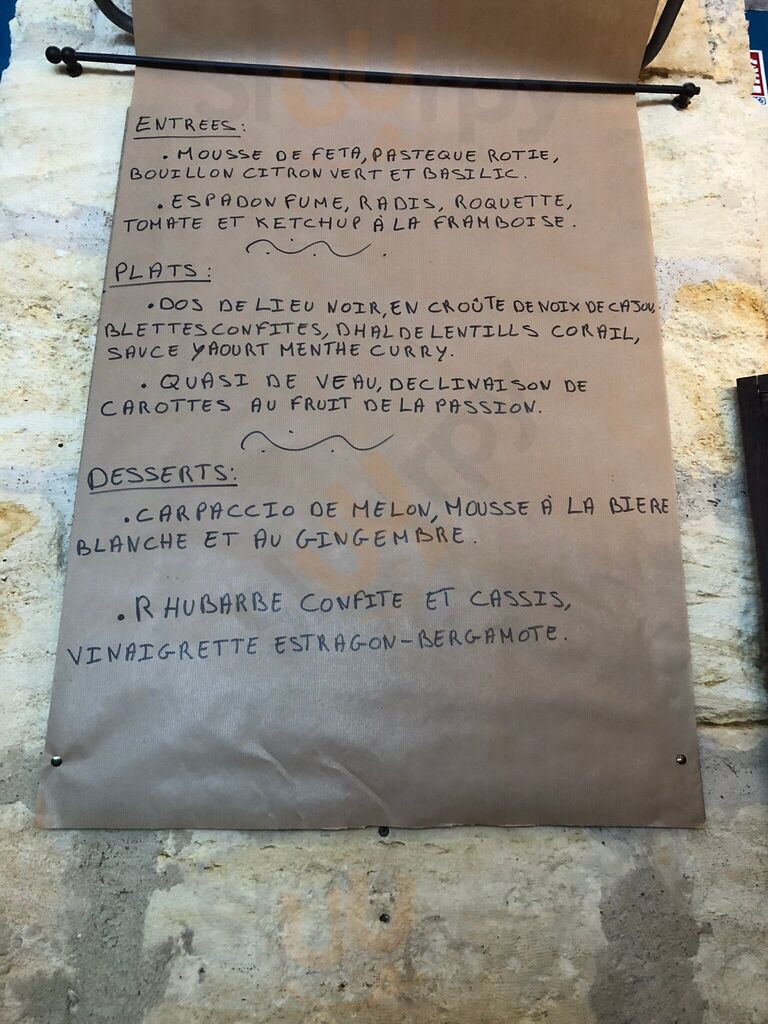 ENTREES:
. MOUSSE DE FETA, PASTEQUE ROTIE,
BOUILLON CITRON VERT ET BASILIC.
. ESPADON FUME, RADIS, ROQUETTE,
TOMATE ET KETCHUP À LA FRAMBOISE.
PLATS:
. DOS DE LIEU NOIR, EN CROÛTE DE NOIX DE CAJOU,
BLETTES CONFITES, DHAL DE LENTILLS CORAIL,
SAUCE YAOURT MENTHE CURRY.
. QUASI DE VEAU, DECLINAISON DE
CAROTTES AU FRUIT DE LA PASSION.
DESSERTS:
. CARPACCIO DE MELON, MOUSSE À LA BIERE
BLANCHE ET AU GINGEMBRE.
. RHUBARBE CONFITE ET CASSIS,
VINAIGRETTE ESTRAGON-BERGAMOTE.